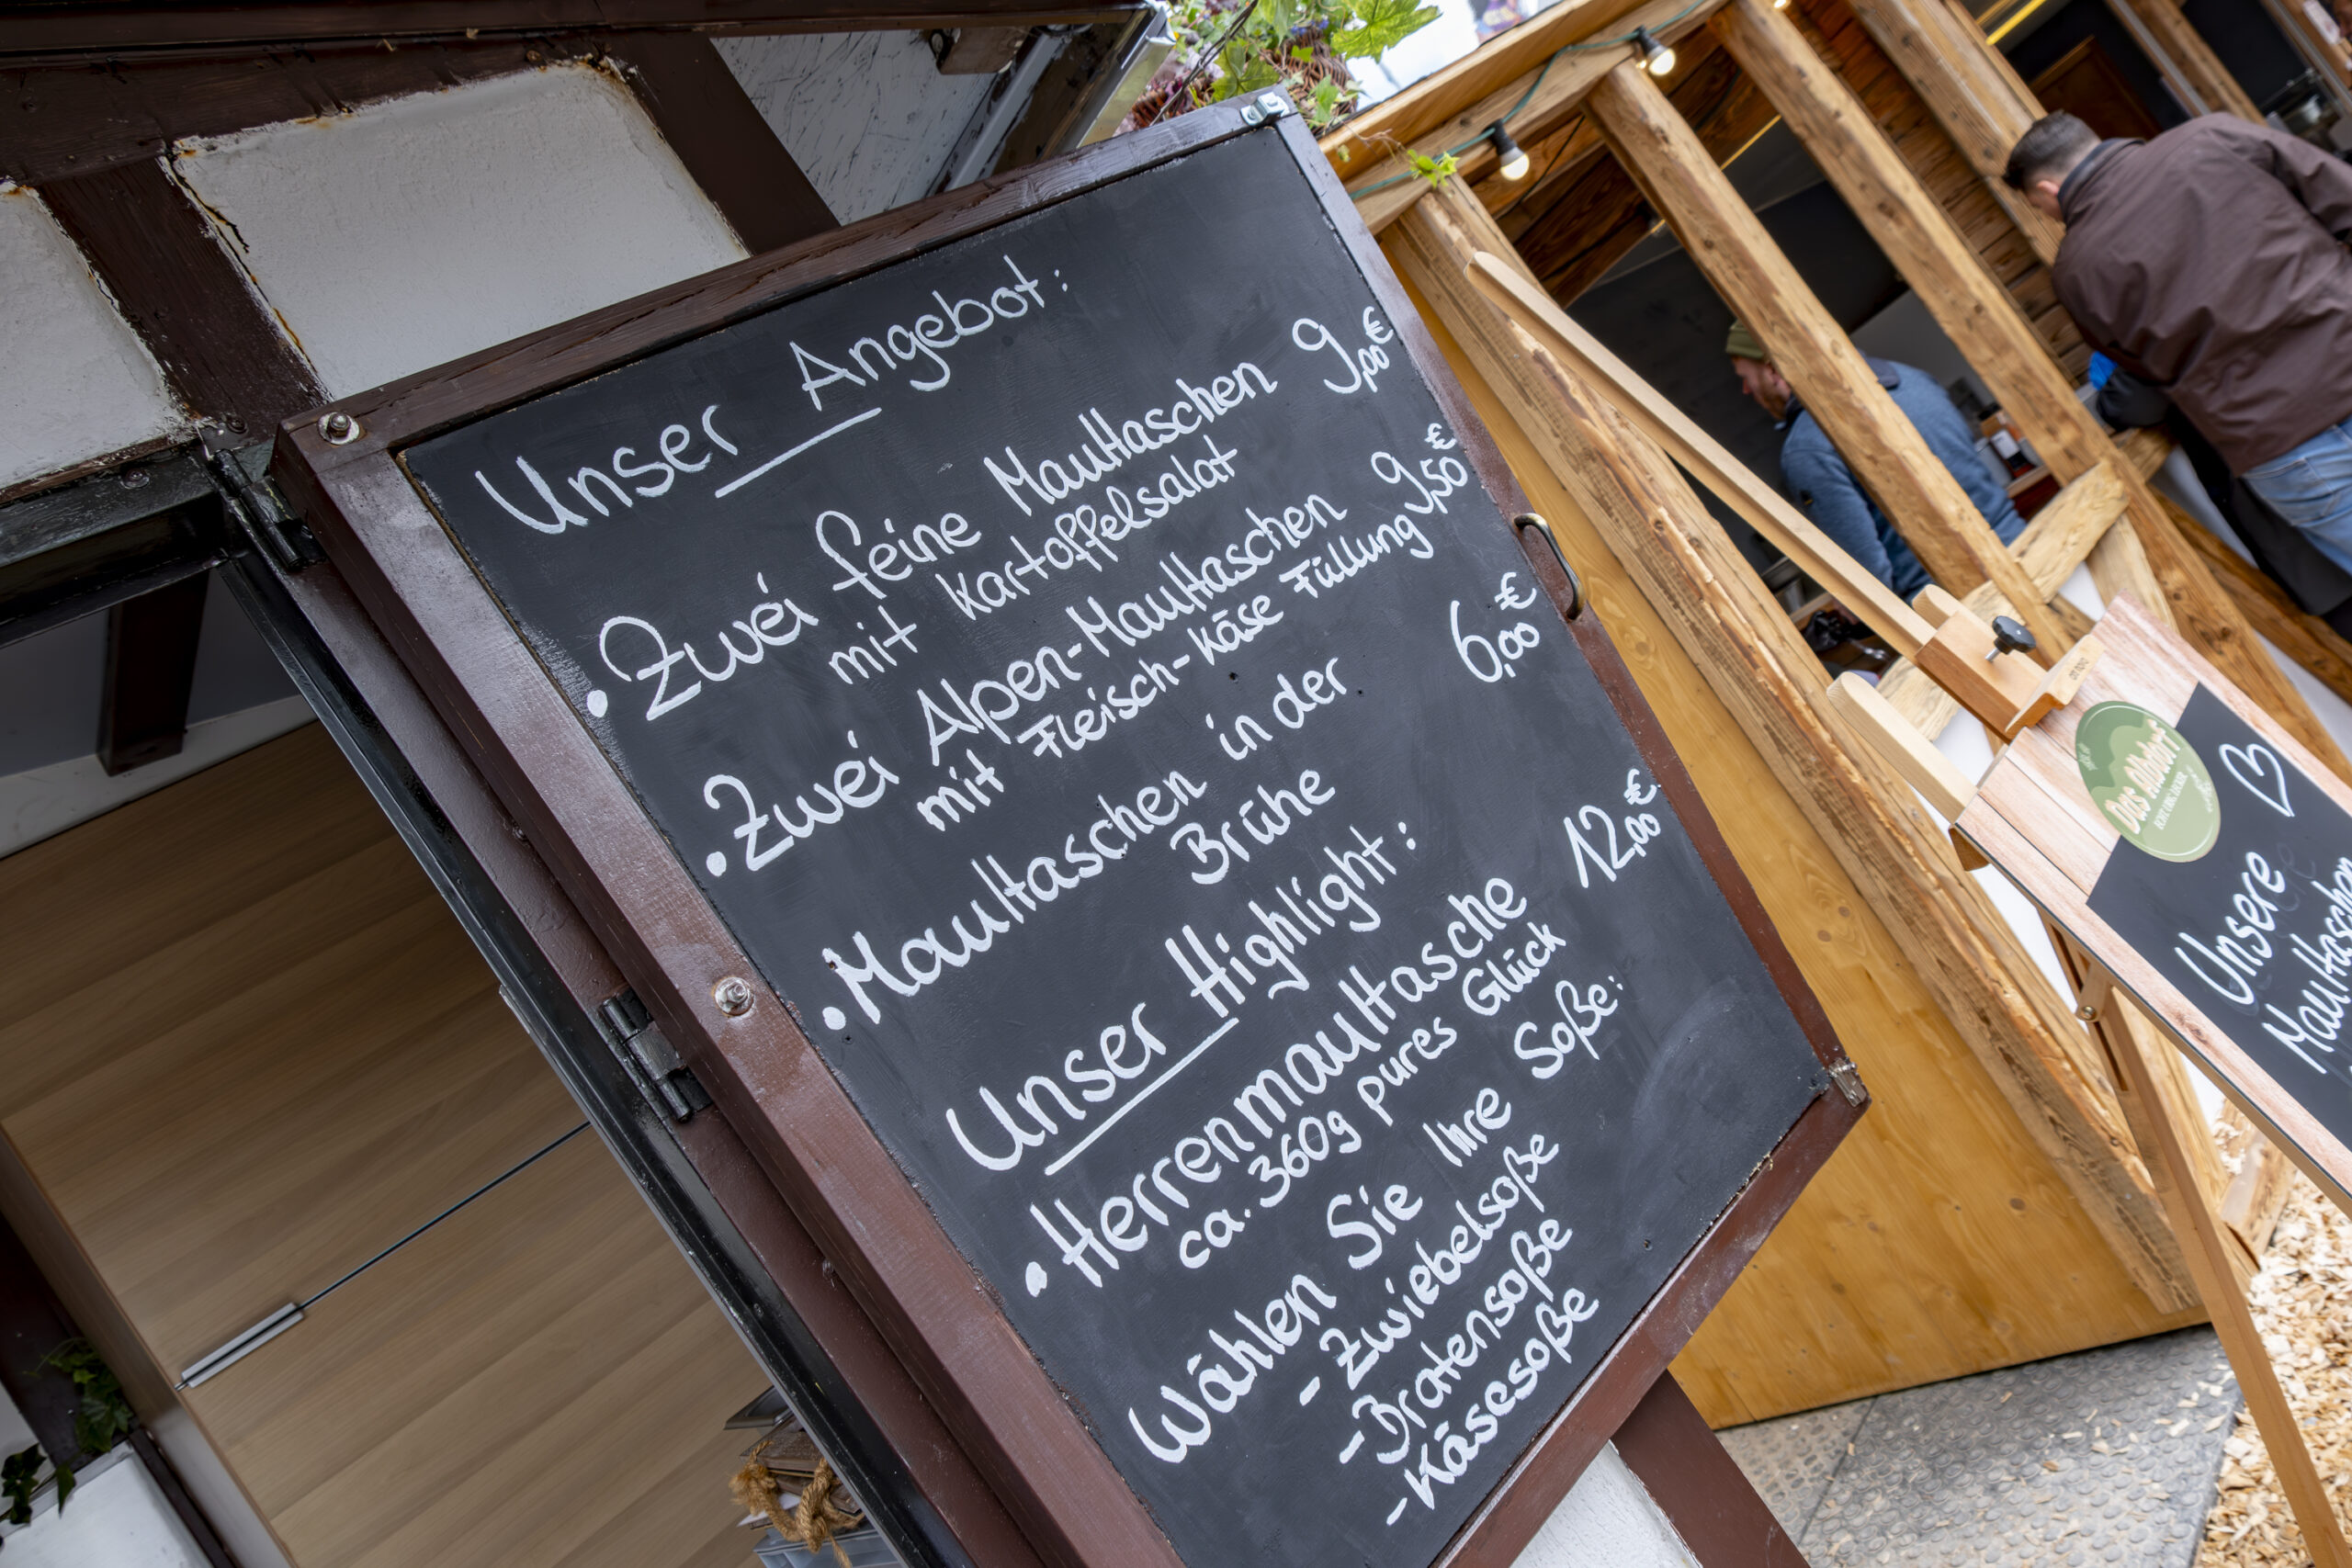 Unser Angebot:
• Zwei feine Maultaschen 9,00€
mit Kartoffelsalat
• Zwei Alpen-Maultaschen 9,50€
mit Fleisch-Käse Füllung
• Maultaschen in der 6,00€
Brühe
Unser Highlight:
• Herrenmaultasche 12,00€
ca. 360g pures Glück
Wählen Sie Ihre Soße:
- Zwiebelsoße
- Bratensoße
- Käsesoße
Das Albdorf
Unsere
Maultaschen